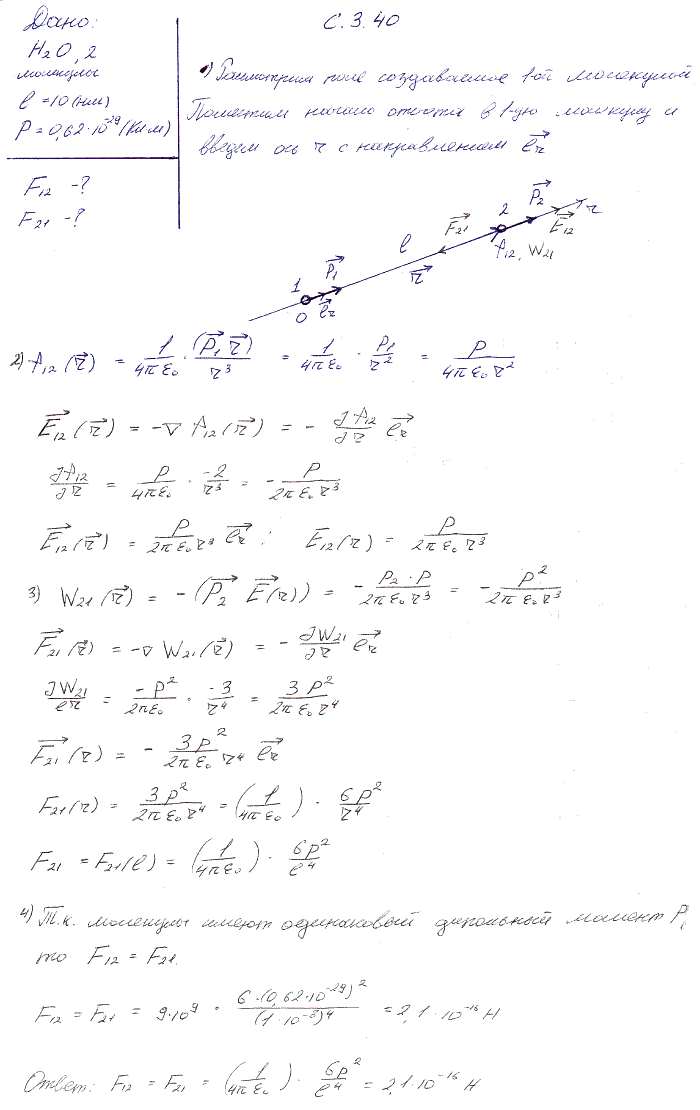 Дано:
С.3.40
H₂O, 2
молекулы
l = 10 (нм)
P = 0,62·10⁻²⁹ (Кл·м)
F₁₂ -?
F₂₁ -?
1) Рассмотрим поле создаваемое 1ой молекулой.
Поместим начало отсчета в 1-ую молекулу и
введем ось r с направлением e⃗r
1 0 P⃗₁ e⃗r l r⃗ F⃗₂₁ 2 P⃗₂ E⃗₁₂ r φ₁₂, W₂₁
2) φ₁₂(r⃗) = 1/(4πε₀) · (P⃗₁ r⃗)/r³ = 1/(4πε₀) · P₁/r² = P/(4πε₀r²)
E⃗₁₂(r⃗) = -∇φ₁₂(r⃗) = - ∂φ₁₂/∂r e⃗r
∂φ₁₂/∂r = P/(4πε₀) · -2/r³ = - P/(2πε₀r³)
E⃗₁₂(r⃗) = P/(2πε₀r³) e⃗r ; E₁₂(r) = P/(2πε₀r³)
3) W₂₁(r⃗) = -(P⃗₂ E⃗(r)) = - P₂·P/(2πε₀r³) = - P²/(2πε₀r³)
F⃗₂₁(r⃗) = -∇W₂₁(r⃗) = - ∂W₂₁/∂r e⃗r
∂W₂₁/er = -P²/(2πε₀) · -3/r⁴ = 3P²/(2πε₀r⁴)
F⃗₂₁(r) = - 3P²/(2πε₀r⁴) e⃗r
F₂₁(r) = 3P²/(2πε₀r⁴) = (1/(4πε₀)) · 6P²/r⁴
F₂₁ = F₂₁(l) = (1/(4πε₀)) · 6P²/l⁴
4) Т.к. молекулы имеют одинаковый дипольный момент P,
то F₁₂ = F₂₁.
F₁₂ = F₂₁ = 9·10⁹ · 6·(0,62·10⁻²⁹)²/(1·10⁻⁸)⁴ = 2,1·10⁻¹⁶ Н
Ответ: F₁₂ = F₂₁ = (1/(4πε₀)) · 6P²/l⁴ = 2,1·10⁻¹⁶ Н